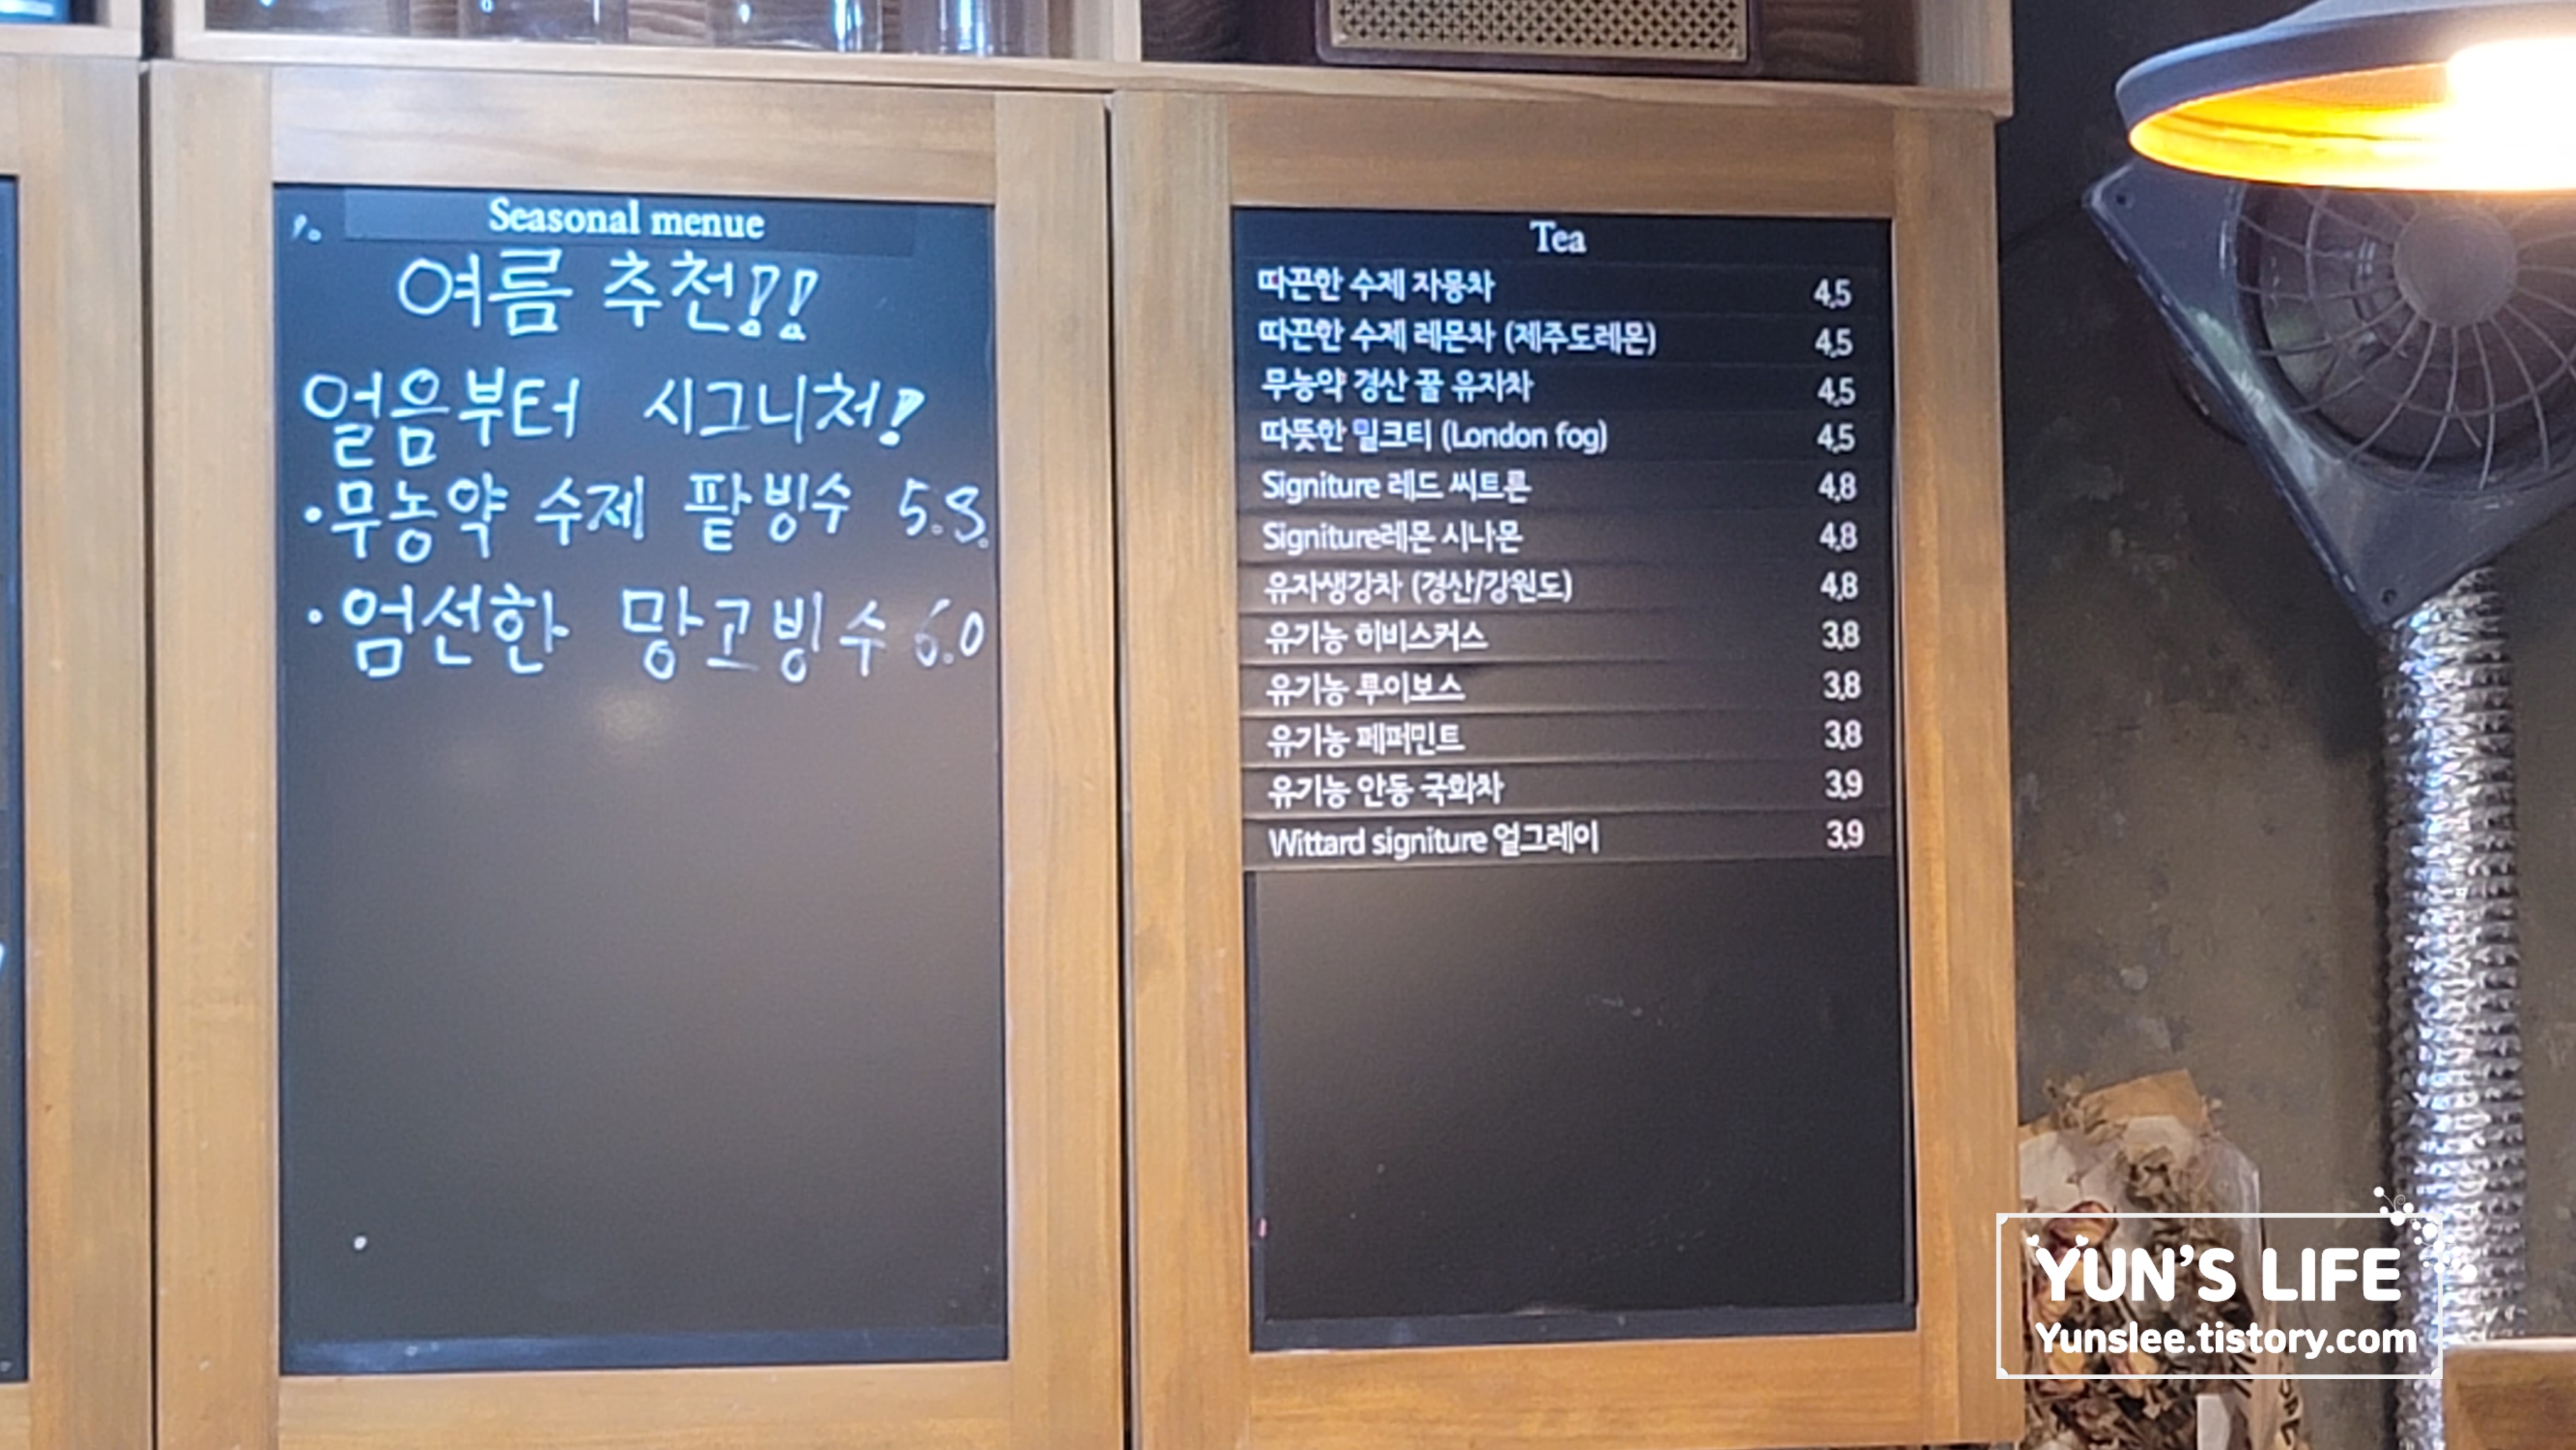 Seasonal menue
여름 추천!!
얼음부터 시그니처!
·무농약 수제 팥빙수 5.8.
·엄선한 망고빙수 6.0
Tea
따끈한 수제 자몽차 4.5
따끈한 수제 레몬차 (제주도레몬) 4.5
무농약 경산 꿀 유자차 4.5
따뜻한 밀크티 (London fog) 4.5
Signiture 레드 씨트른 4.8
Signiture레몬 시나몬 4.8
유자생강차 (경산/강원도) 4.8
유기농 히비스커스 3.8
유기농 루이보스 3.8
유기농 페퍼민트 3.8
유기농 안동 국화차 3.9
Wittard signiture 얼그레이 3.9
YUN'S LIFE
Yunslee.tistory.com